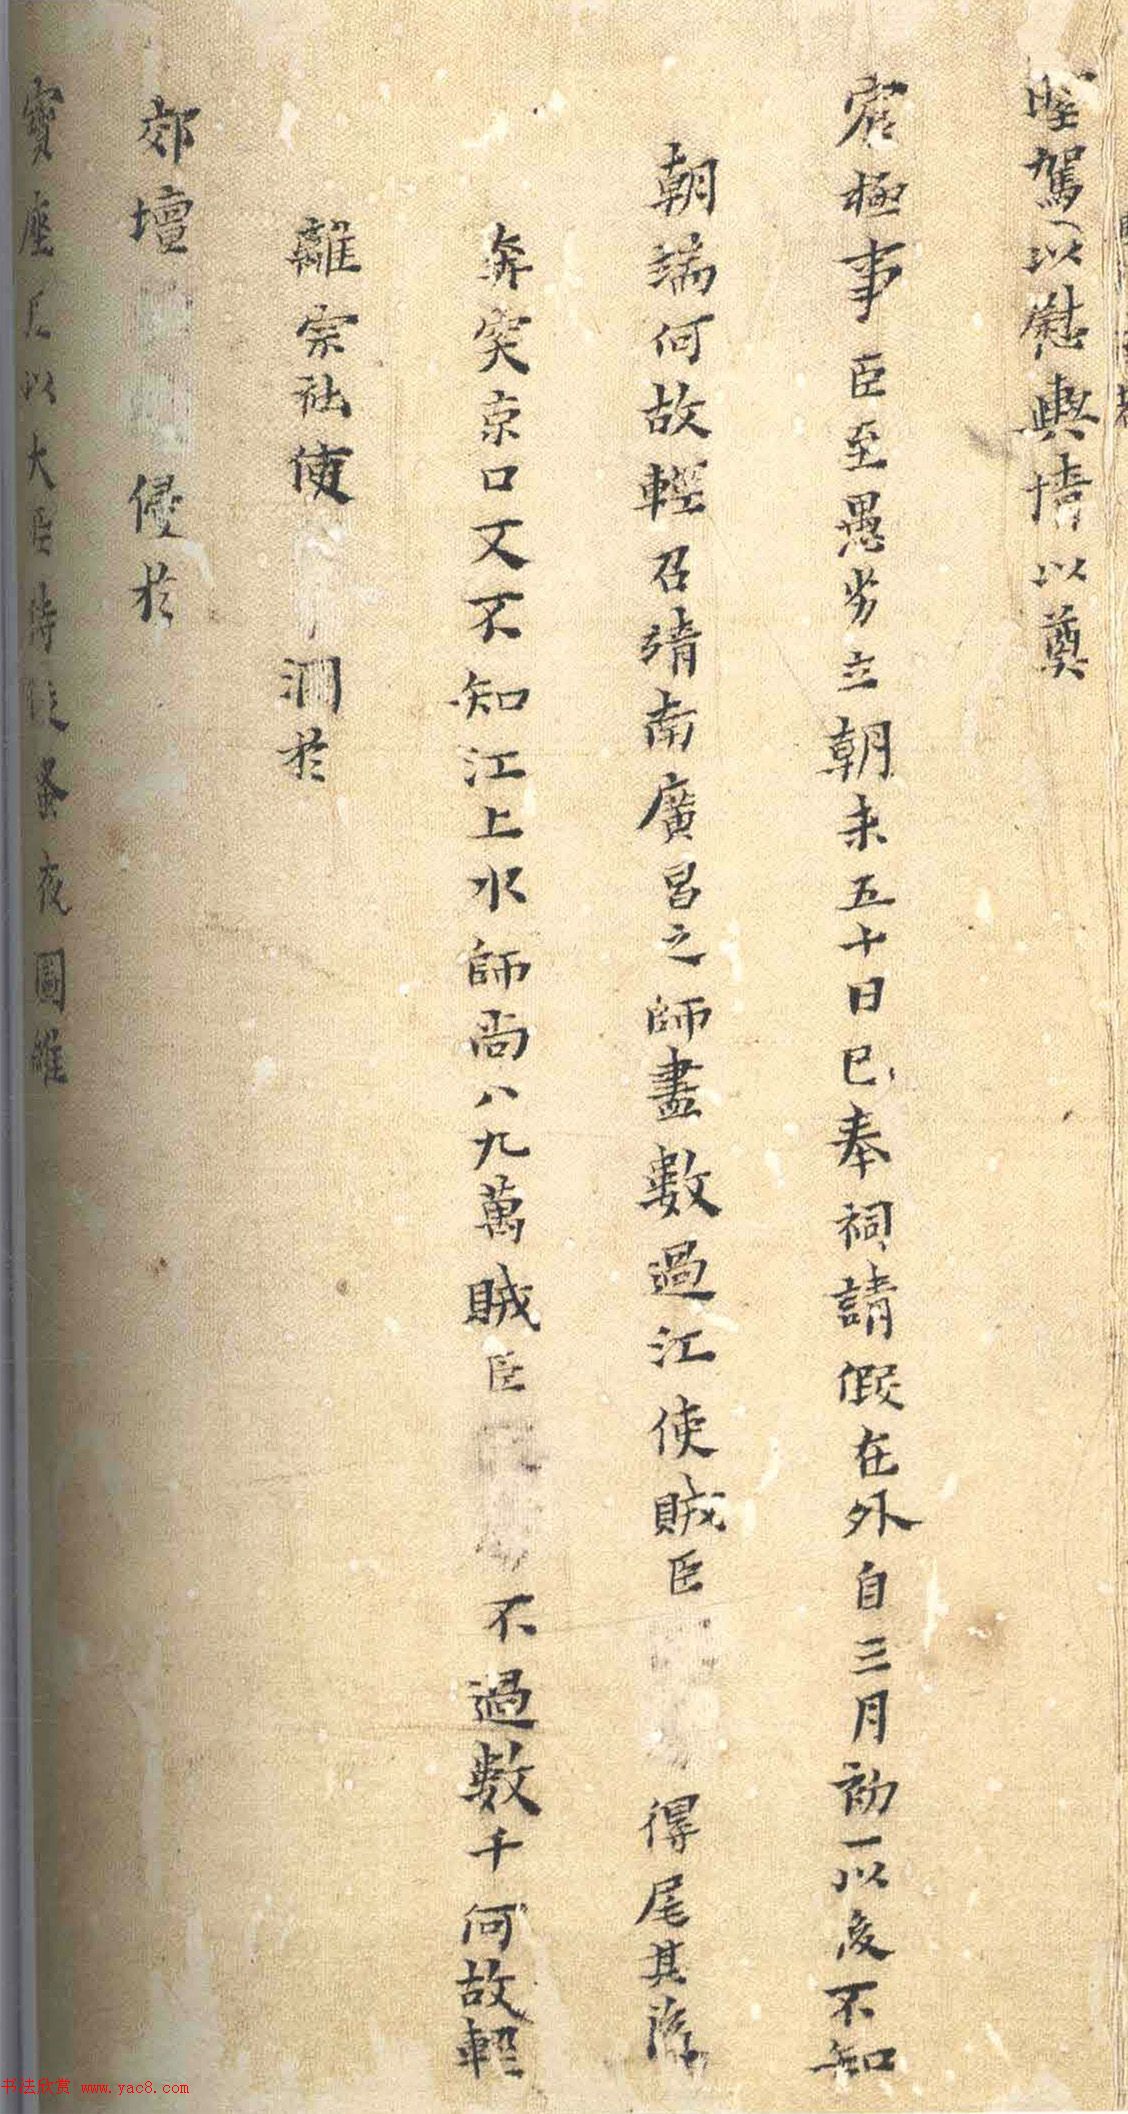 蹕駕以慰輿情以奠
宸極事臣至愚劣立朝未五十日已奉祠請假在外自三月初一以後不知
朝端何故輕召靖南廣昌之師盡數過江使賊臣得尾其後
奔突京口又不知江上水師尚八九萬賊臣不過數千何故輕
離宗社使澗於
郊壇侵於
寶座臣以大臣待從蚤夜圖維
书法欣赏 www.yac8.com